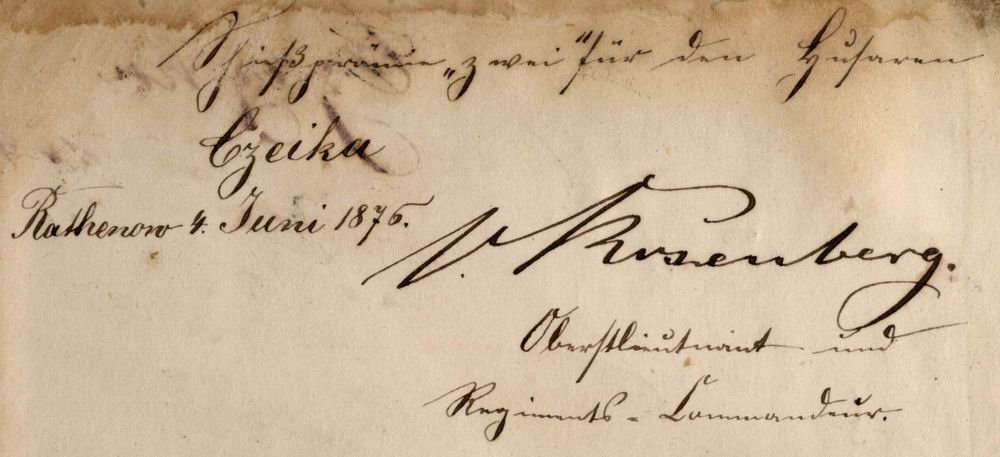 Schießprämie „zwei“ für den Husaren
Czeika
Rathenow 4. Juni 1876.
v. Rosenberg.
Oberstlieutnant und
Regiments-Commandeur.